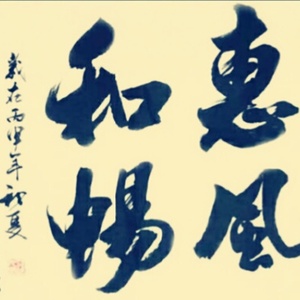 惠風
和暢
歲在丙申年初夏